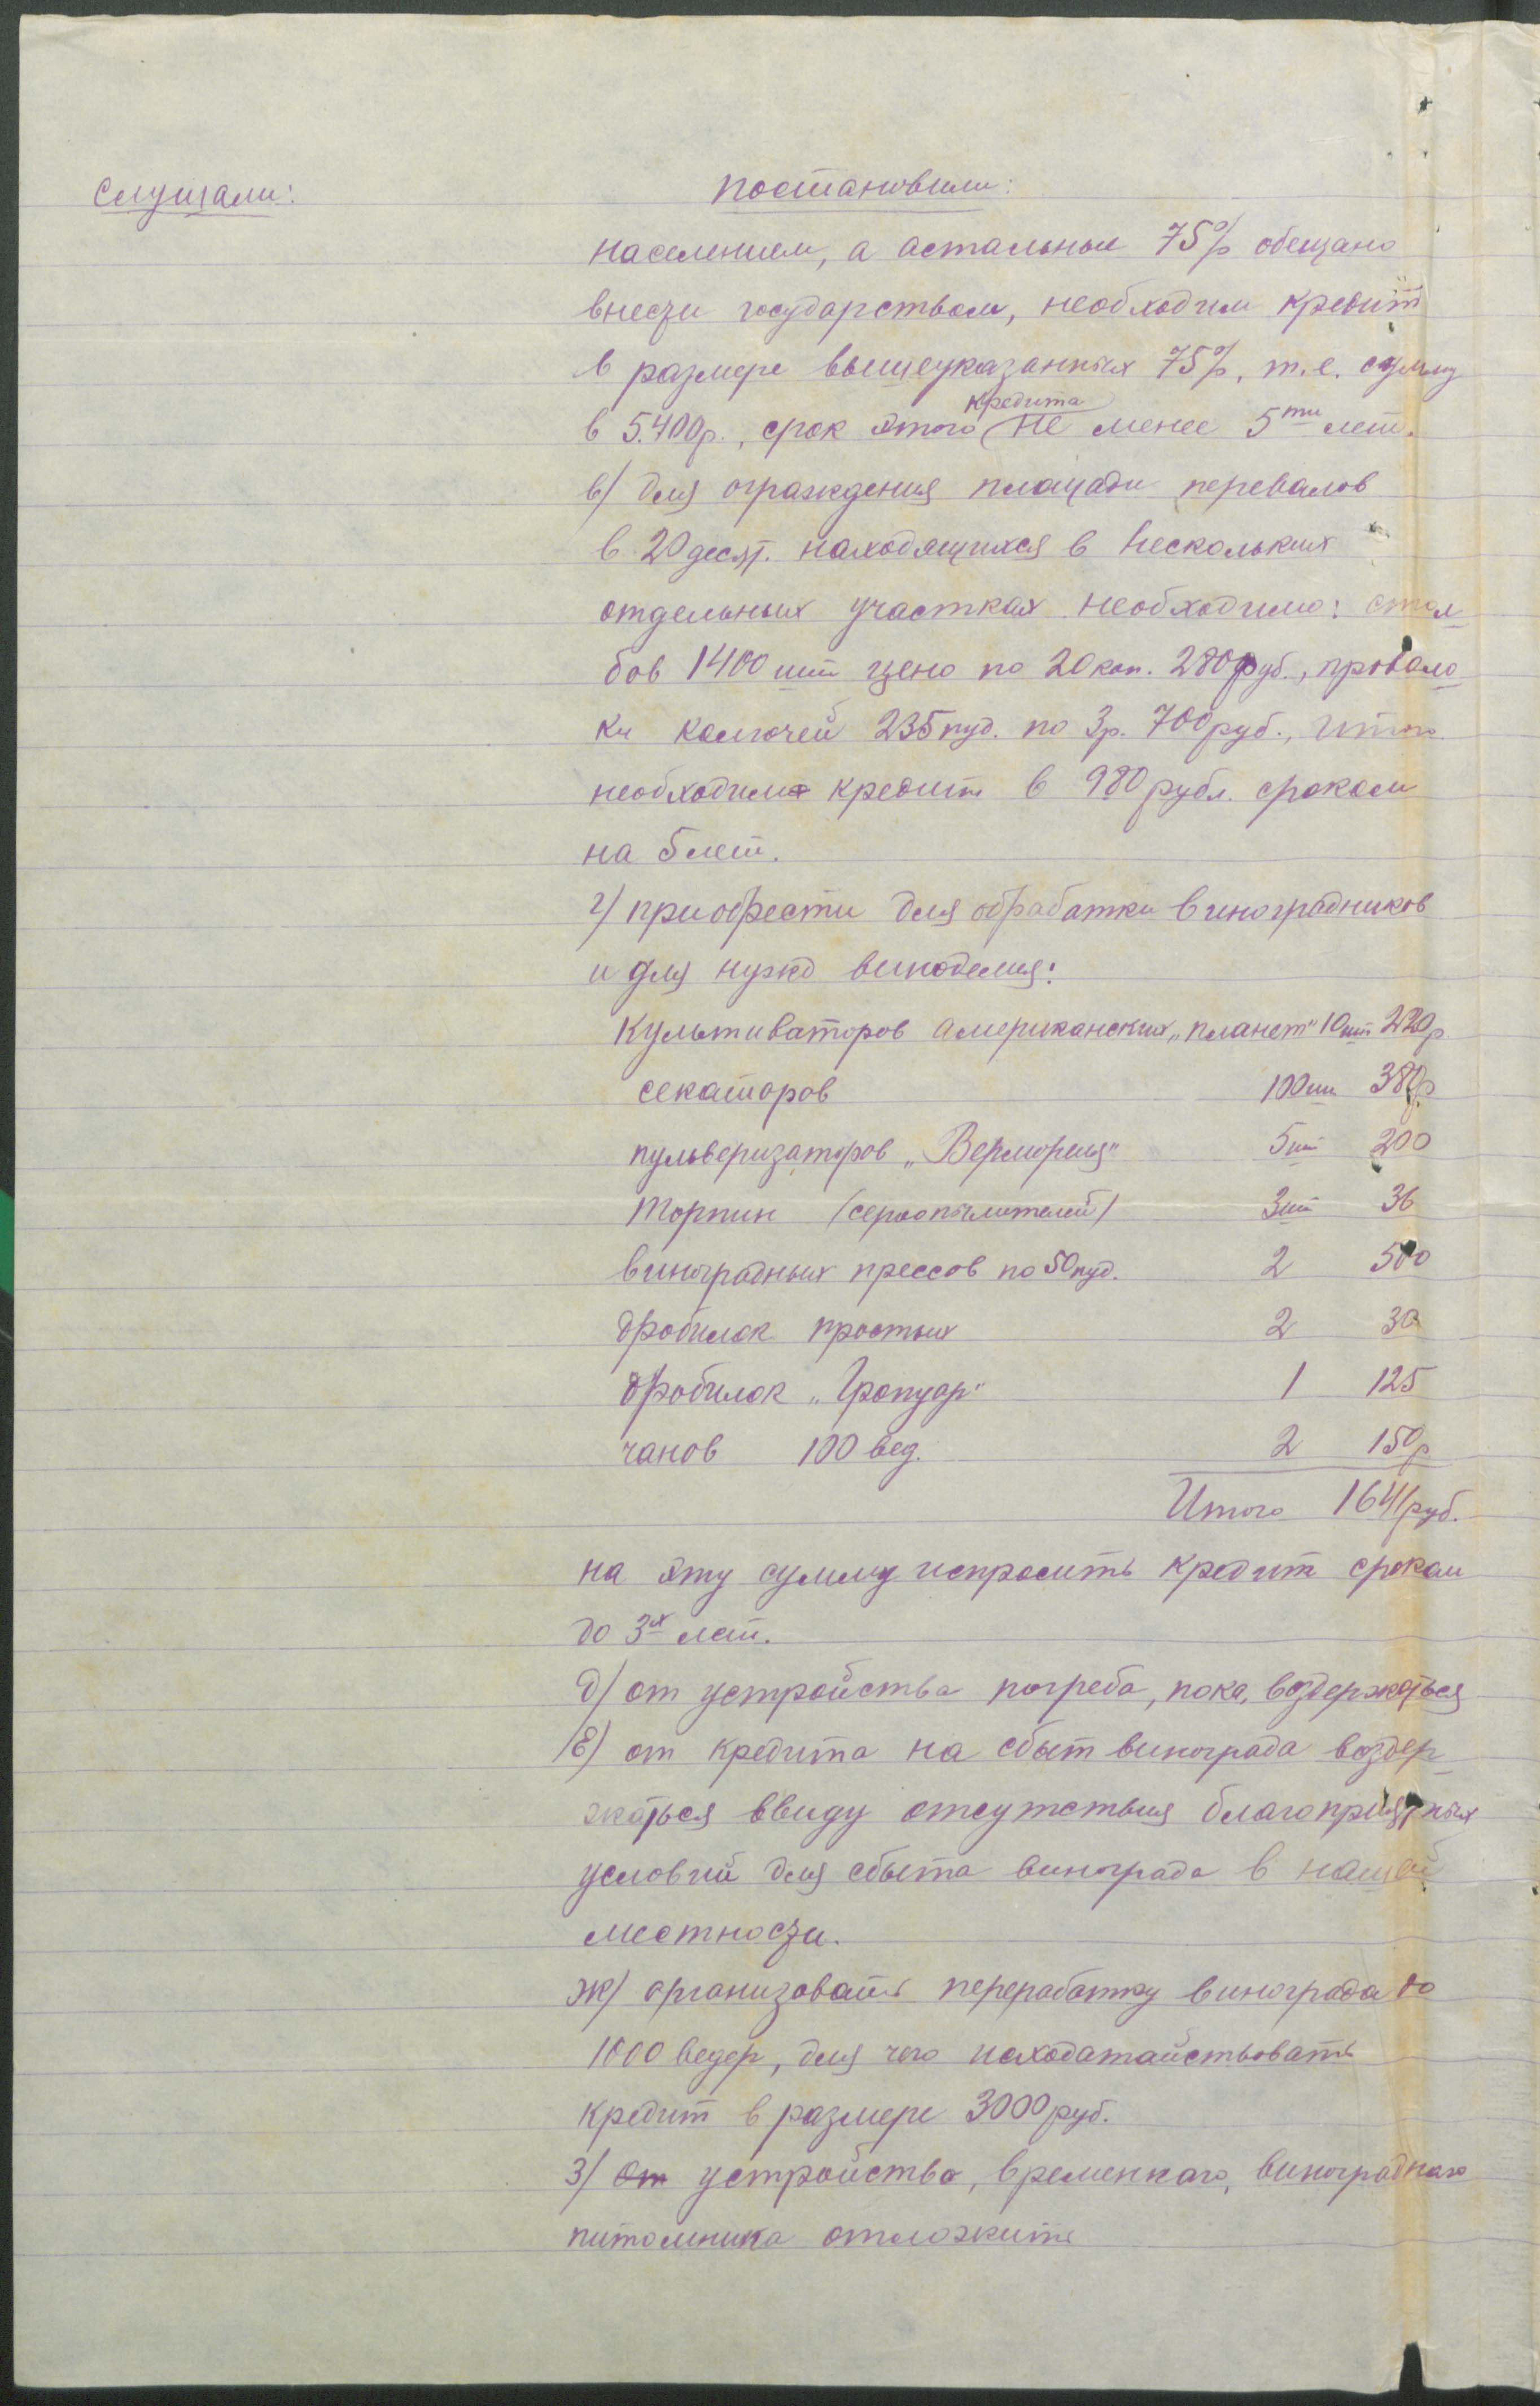 Слушали:
постановили:
населением, а астальные 75% обещано
внести государством, необходим кредит
в размере вышеуказанных 75%, т.е. сумму
кредита
в 5.400р., срок этого не менее 5ти лет.
в) для ограждения площади перевалов
в 20 десят. находящихся в нескольких
отдельных участках необходимо: стол
бов 1400 шт цено по 20 коп. 280 руб., провало
ки колючей 235 пуд. по 3р. 700 руб., итого
необходимо кредит в 980 рубл. сроком
на 5 лет.
г) приобрести для обработки виноградников
и для нужд виноделия:
Культиваторов американских „планет" 10 шт 220р.
секаторов 100 шт 380р
пульверизаторов „Вермореля" 5 шт 200
Торпин (сероопылителей) 3 шт 36
виноградных прессов по 50 пуд. 2 500
дробилок простых 2 30
дробилок „Грапуар" 1 125
чанов 100 вед. 2 150р
Итого 1641 руб.
на эту сумму испросить кредит сроком
до 3х лет.
д) от устройства погреба, пока, воздержаться
е) от кредита на сбыт винограда воздер
жаться ввиду отсутствия благоприятных
условий для сбыта винограда в нашей
местности.
ж) организовать переработку винограда до
1000 ведер, для чего исходатайствовать
кредит в размере 3000 руб.
з) От устройство, временнаго, винограднаго
питомника отложить